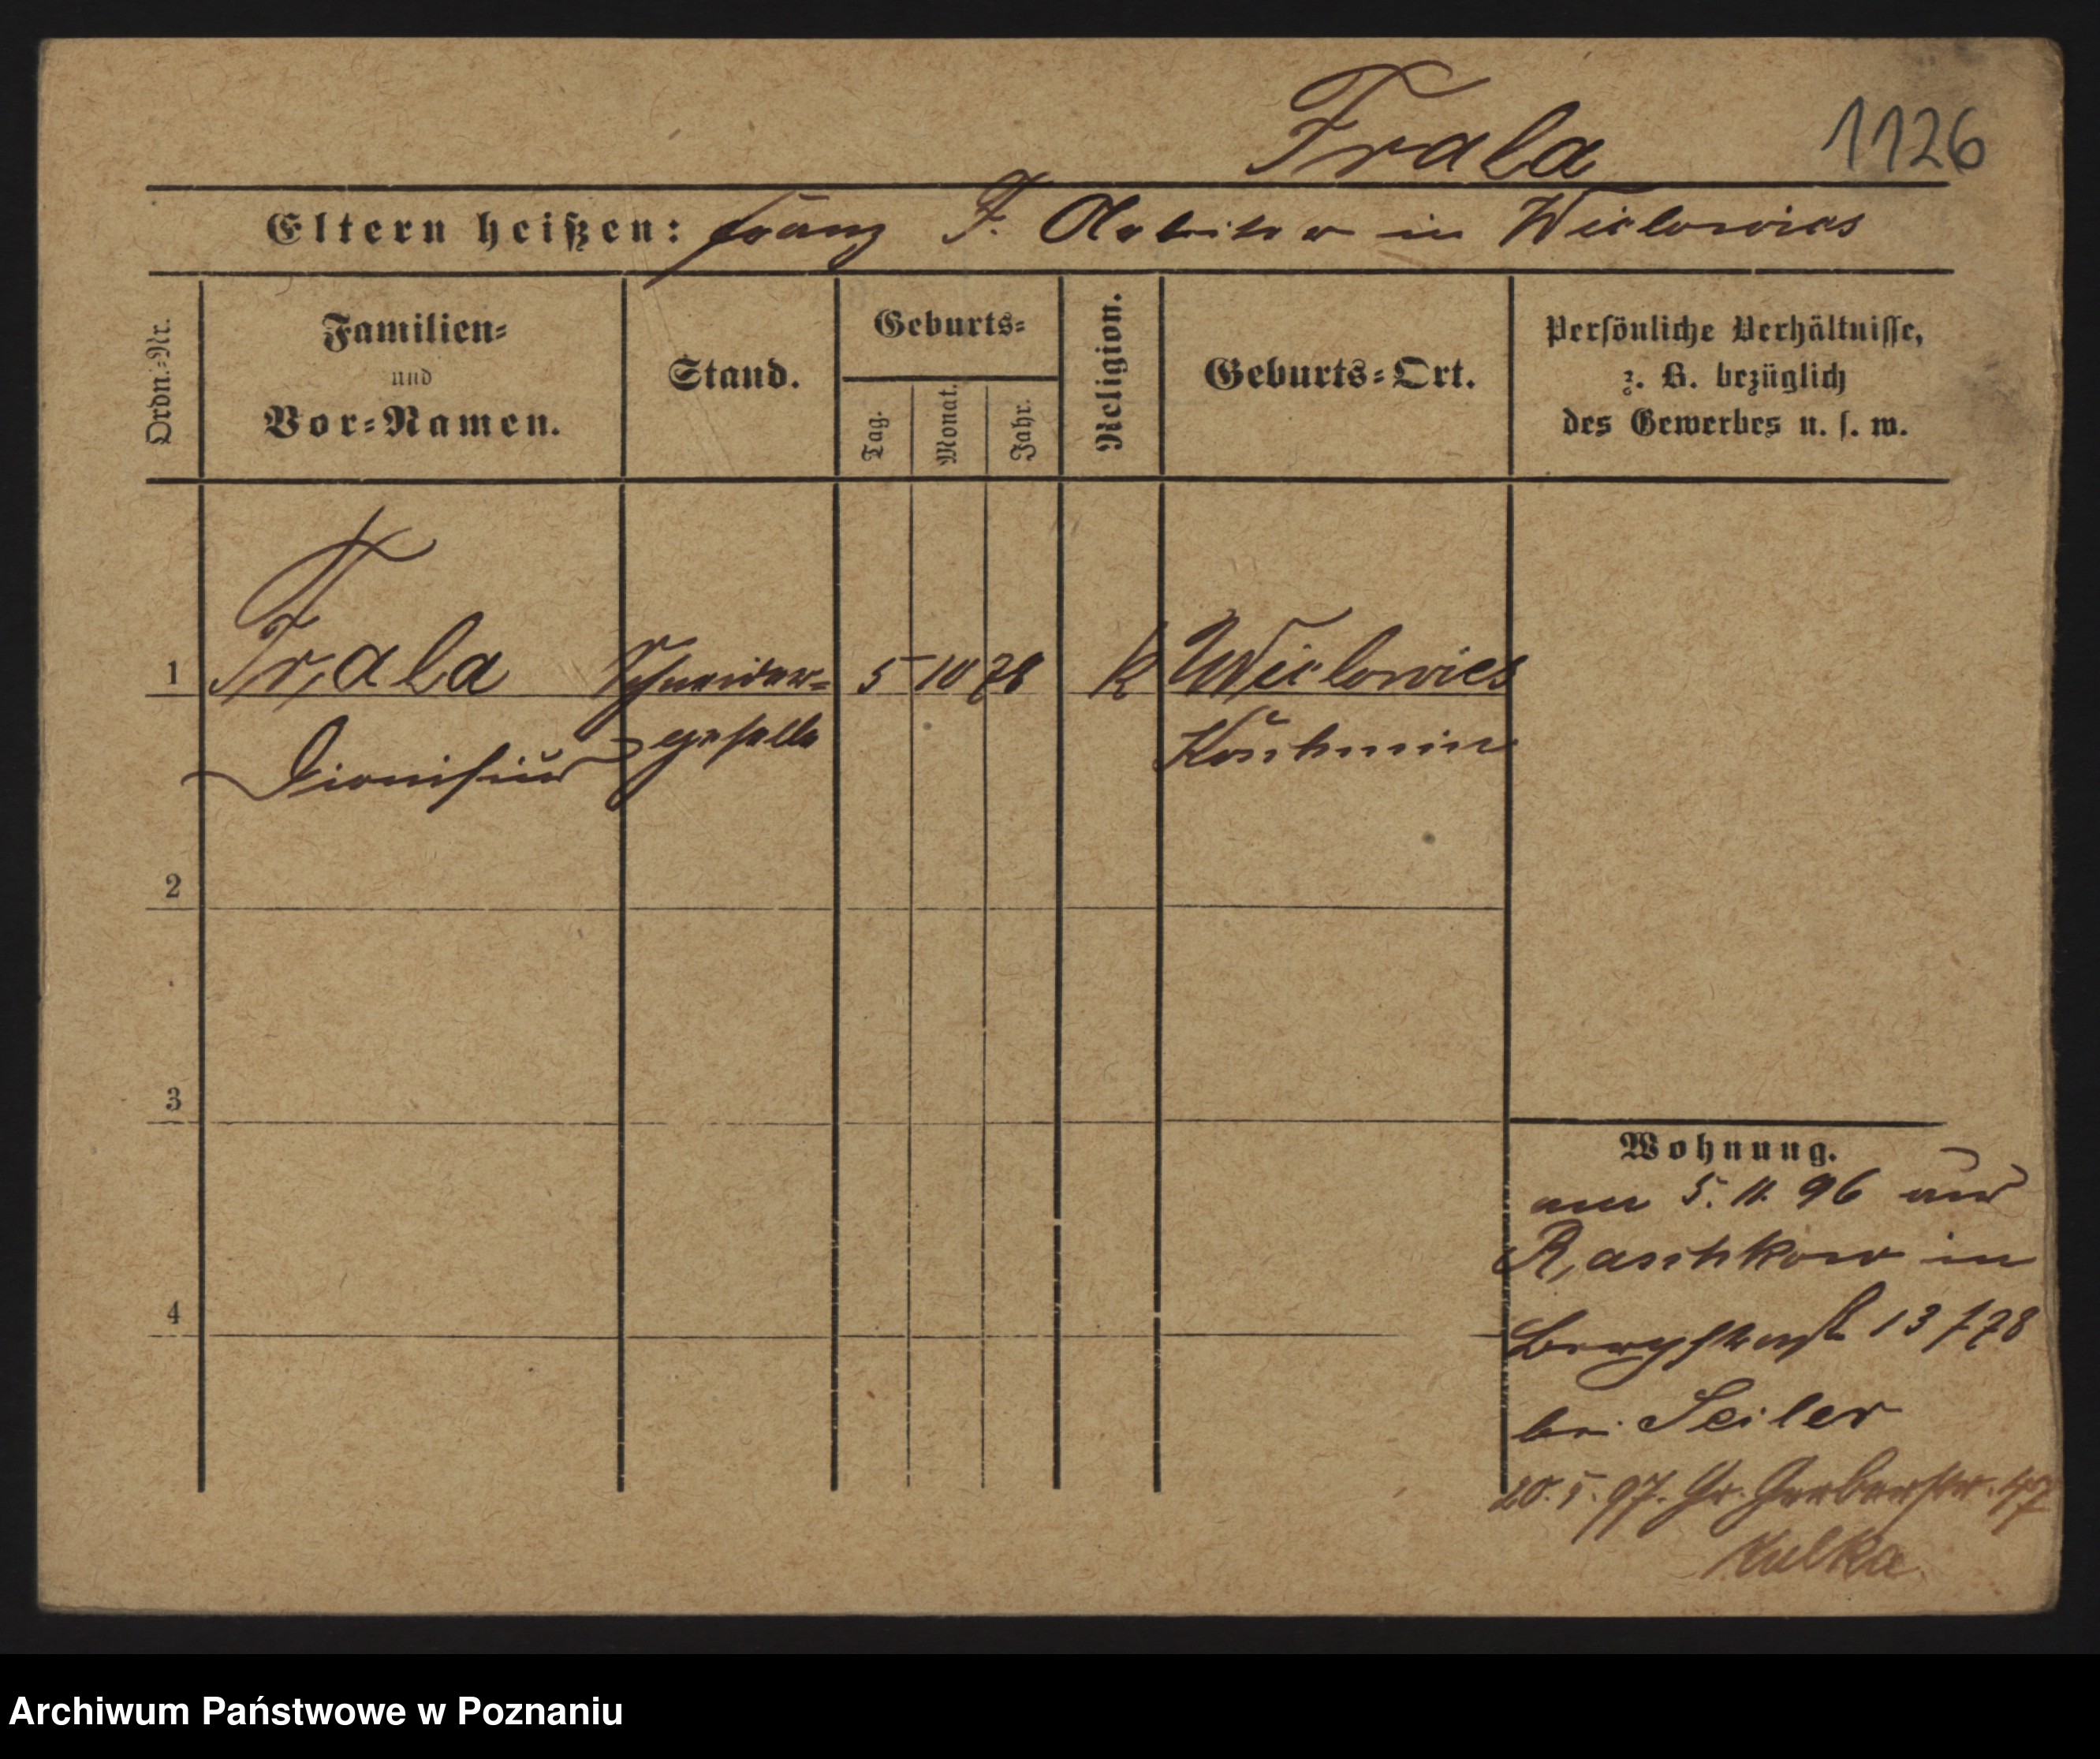 Frala 1126
Eltern heißen: Franz F. Arbeiter in Wielowies
Ordn.=Nr.
Familien=
und
Vor=Namen.
Stand.
Geburts=
Tag.
Monat.
Jahr.
Religion.
Geburts=Ort.
Persönliche Verhältnisse,
z. B. bezüglich
des Gewerbes u. s. w.
1 Frala Schneider= 5 10 78 K Wielowies
Dionisius geselle
2
3
4
Wohnung.
am 5. 11. 96 aus
Raschkow in
Bergstraße 13
bei Seiler
20. 5. 97. Gr. Gerberstr. 47
Kulka
Archiwum Państwowe w Poznaniu